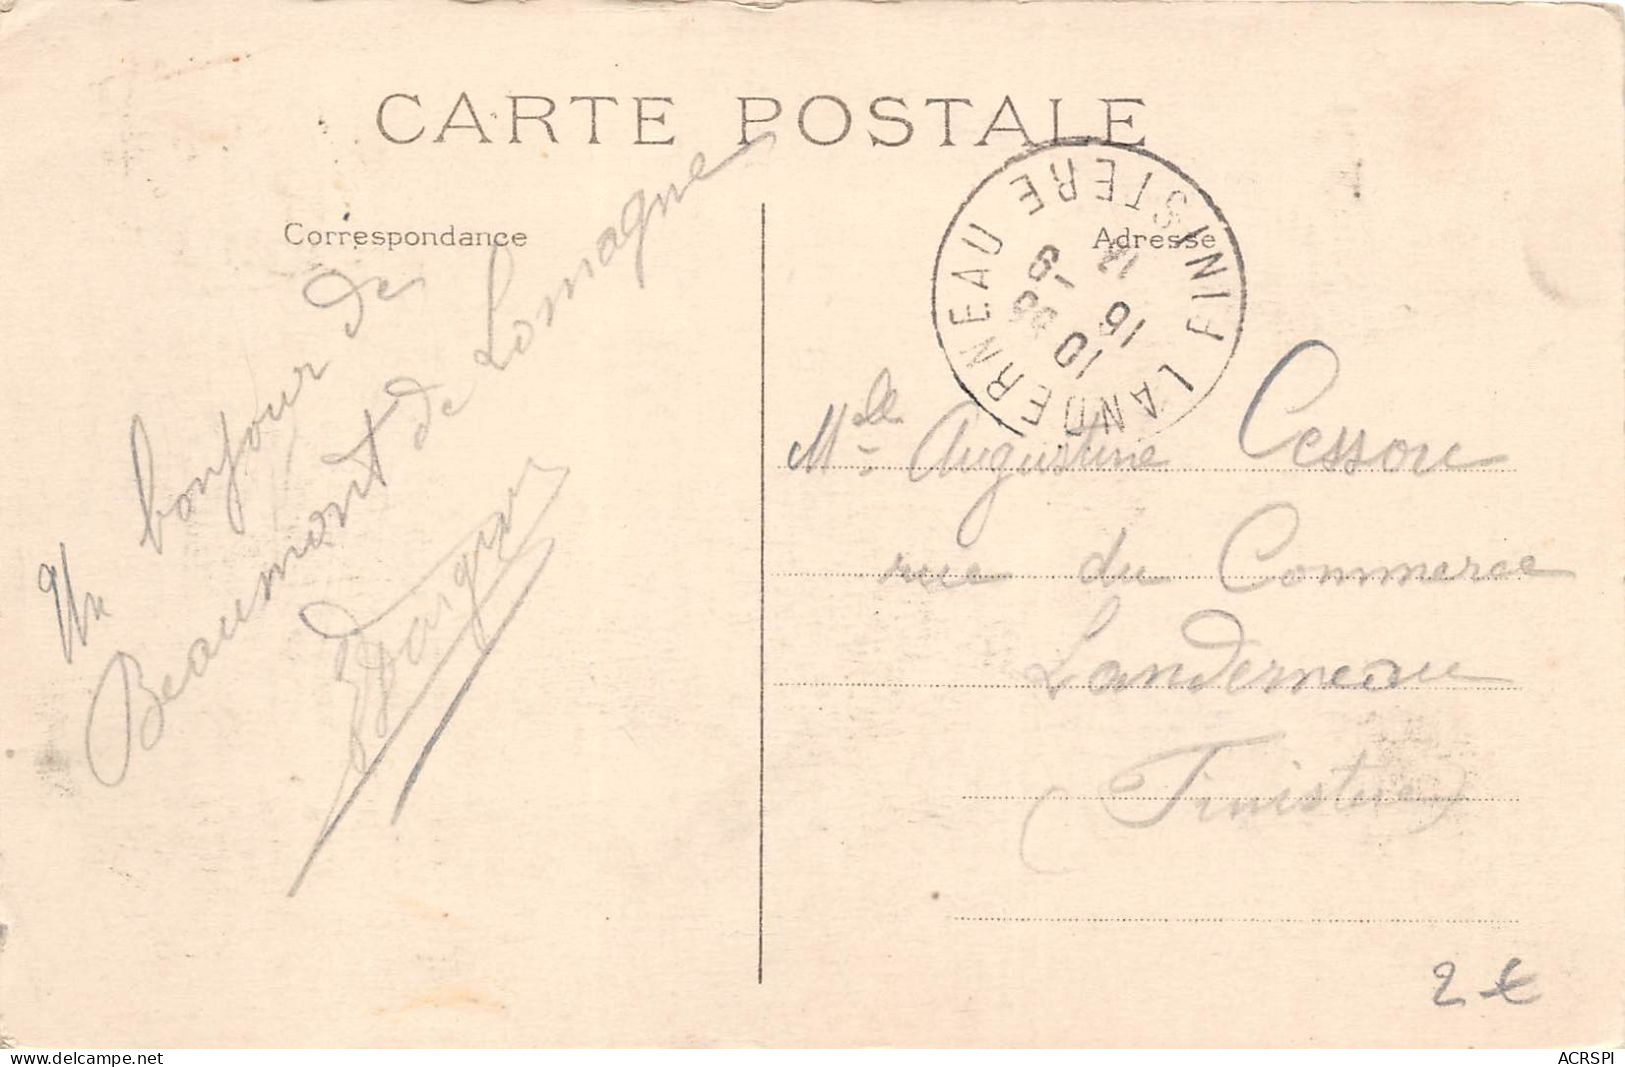 CARTE POSTALE
Correspondance
Adresse
LANDERNEAU FINISTERE
Un bonjour de
Beaumont de Lomagne
Mlle Augustine Cessou
rue du Commerce
Landerneau
(Finistère)
2 €
www.delcampe.net
ACRSPI